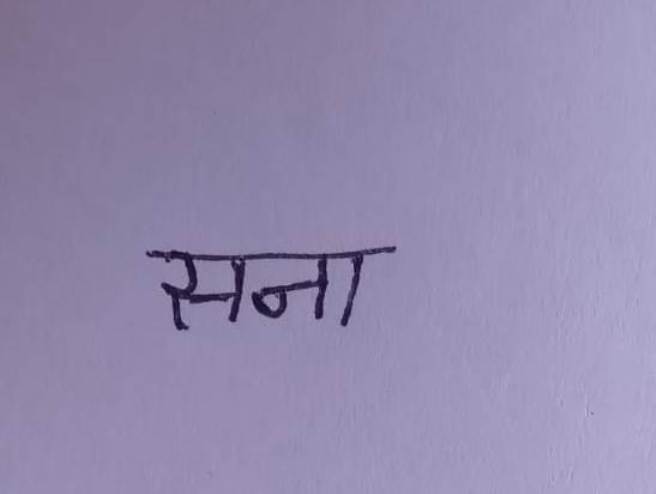 सना